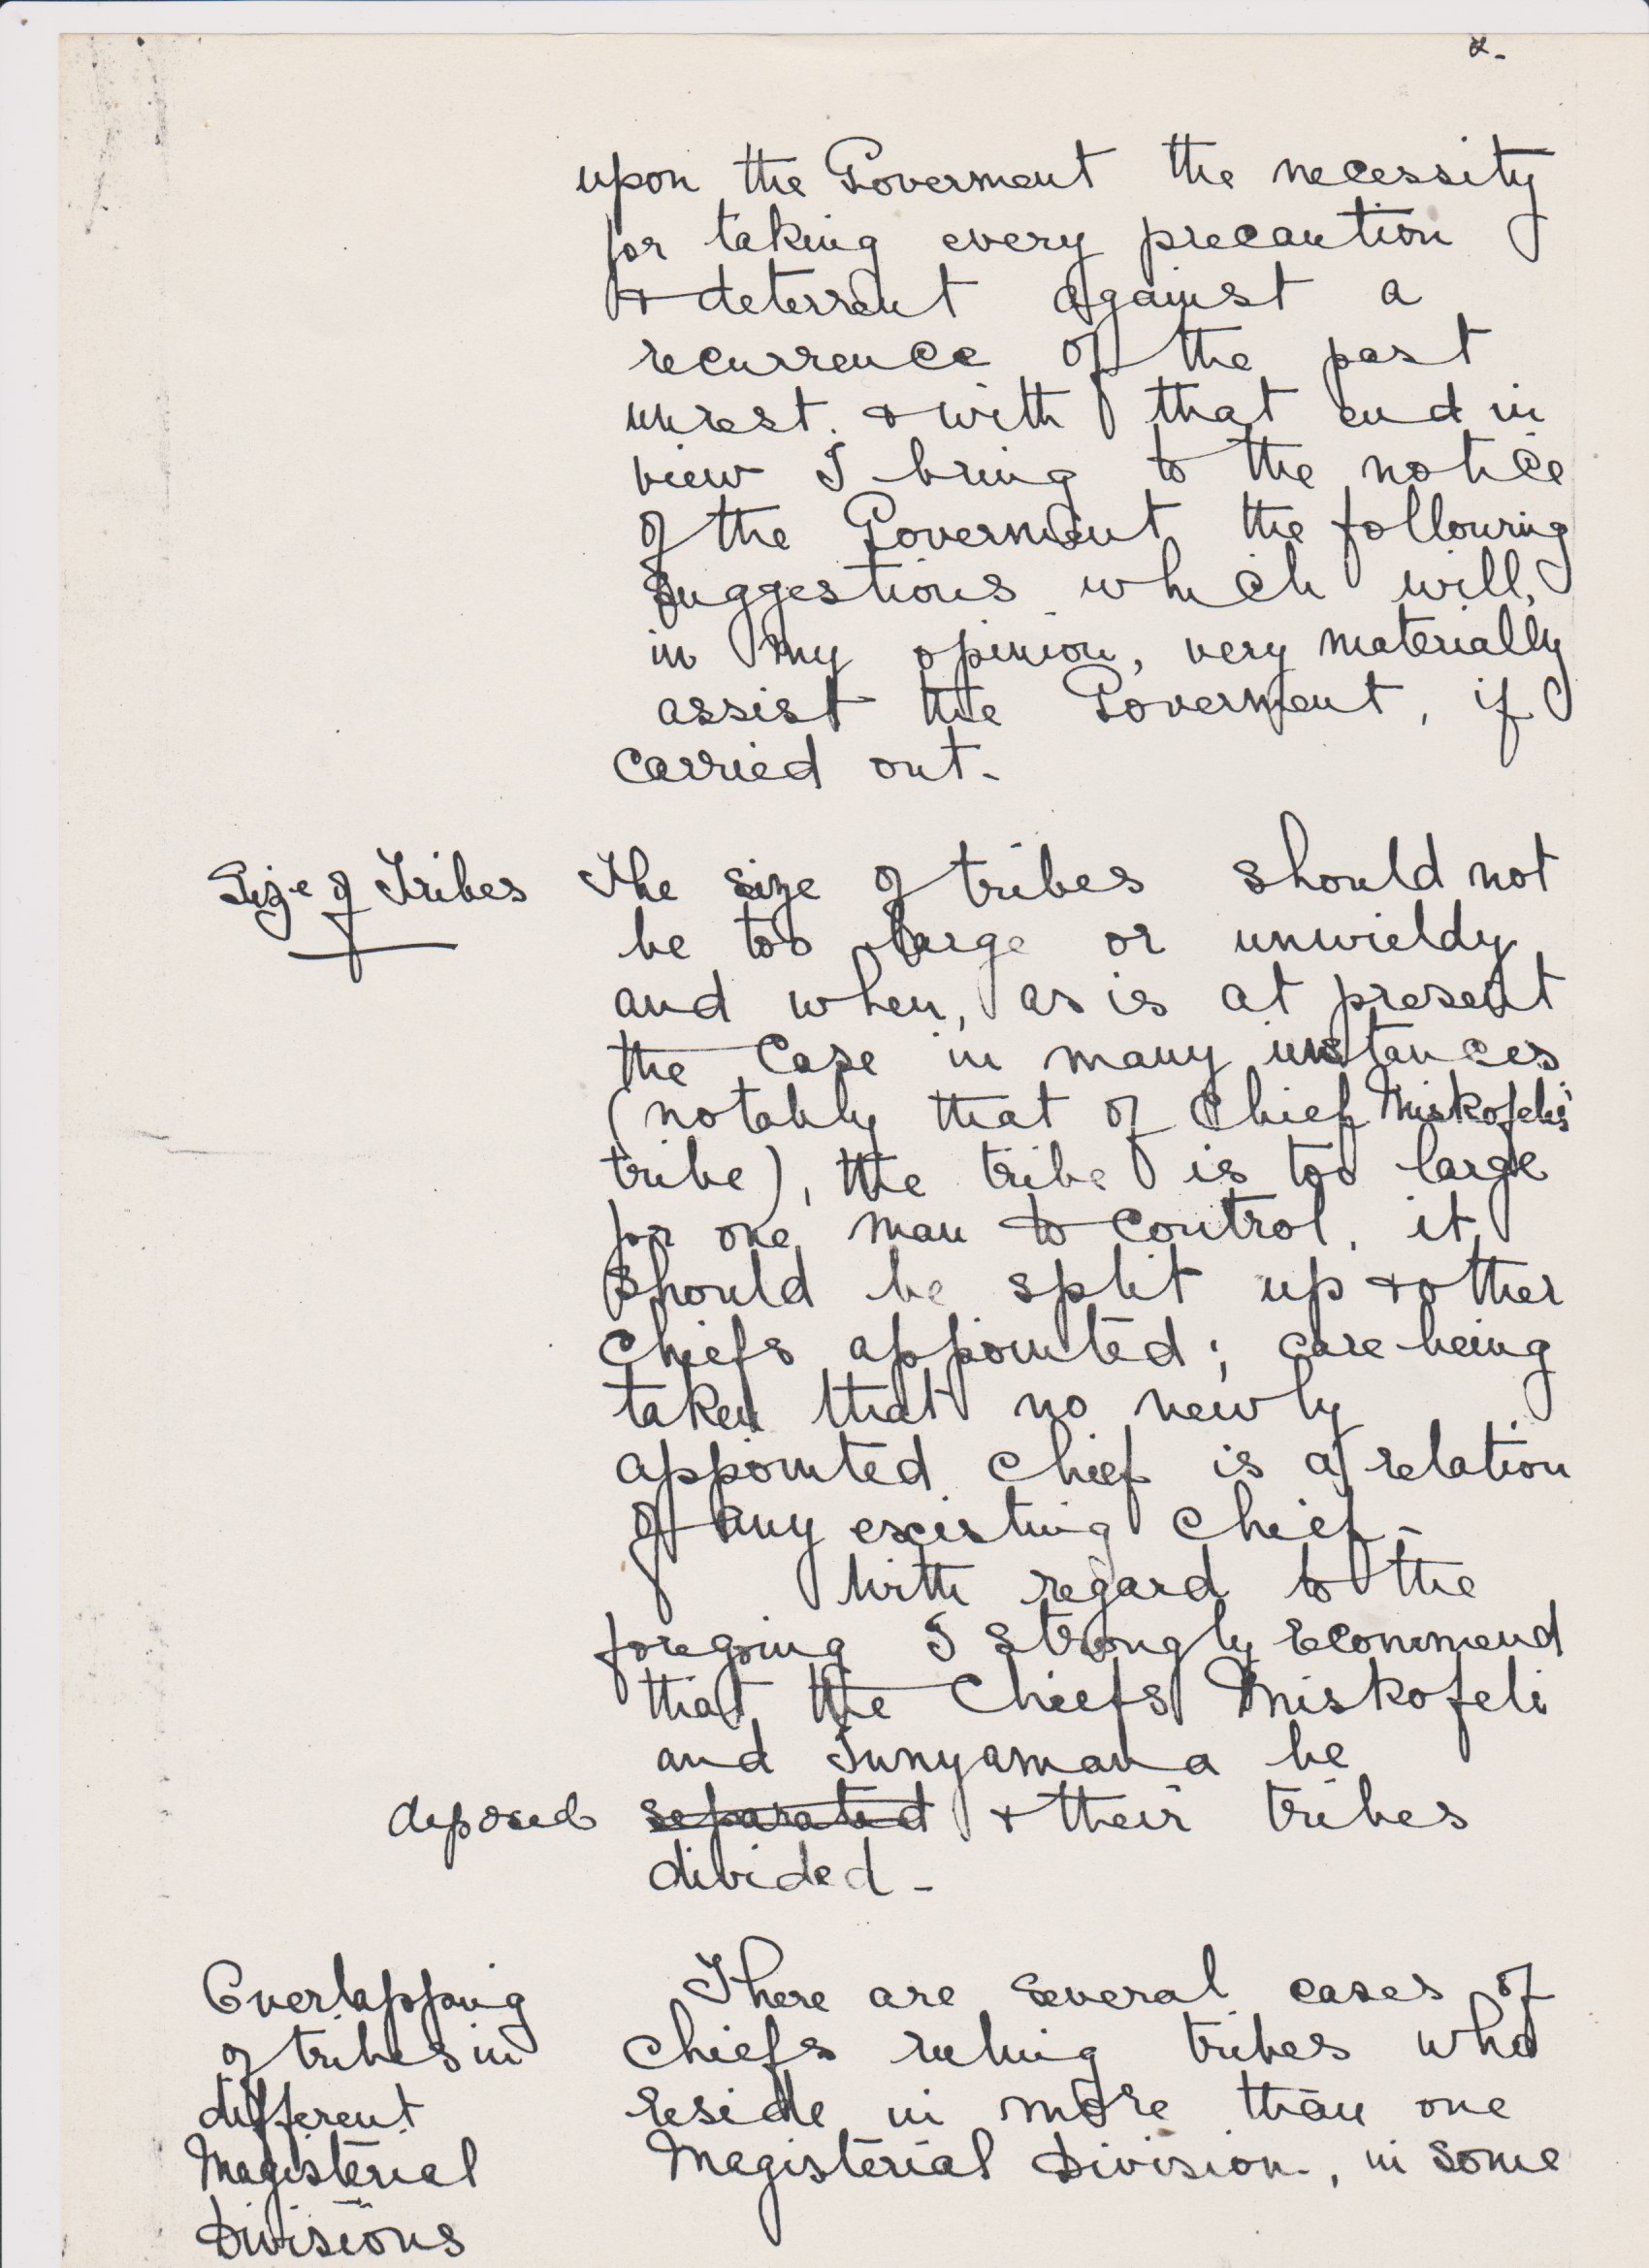 2.
upon the Goverment the necessity
for taking every precaution
& deterrent against a
recurrence of the past
unrest. & with that end in
view I bring to the notice
of the Goverment the following
suggestions which will,
in my opinion, very materially
assist the Goverment, if
carried out-
Size of Tribes
The size of tribes should not
be too large or unwieldy
and when, as is at present
the case in many instances
(notably that of Chief Miskofelis'
tribe), the tribe is too large
for one man to control, it
should be split up & other
chiefs appointed; care being
taken that no newly
appointed chief is a relation
of any existing chief-
With regard to the
foregoing I strongly recommend
that the Chiefs Miskofeli
and Tunyamana be
deposed separated & their tribes
divided-
Overlapping
of tribes in
different
Magisterial
Divisions
There are several cases of
chiefs ruling tribes who
reside in more than one
Magisterial Division, in some